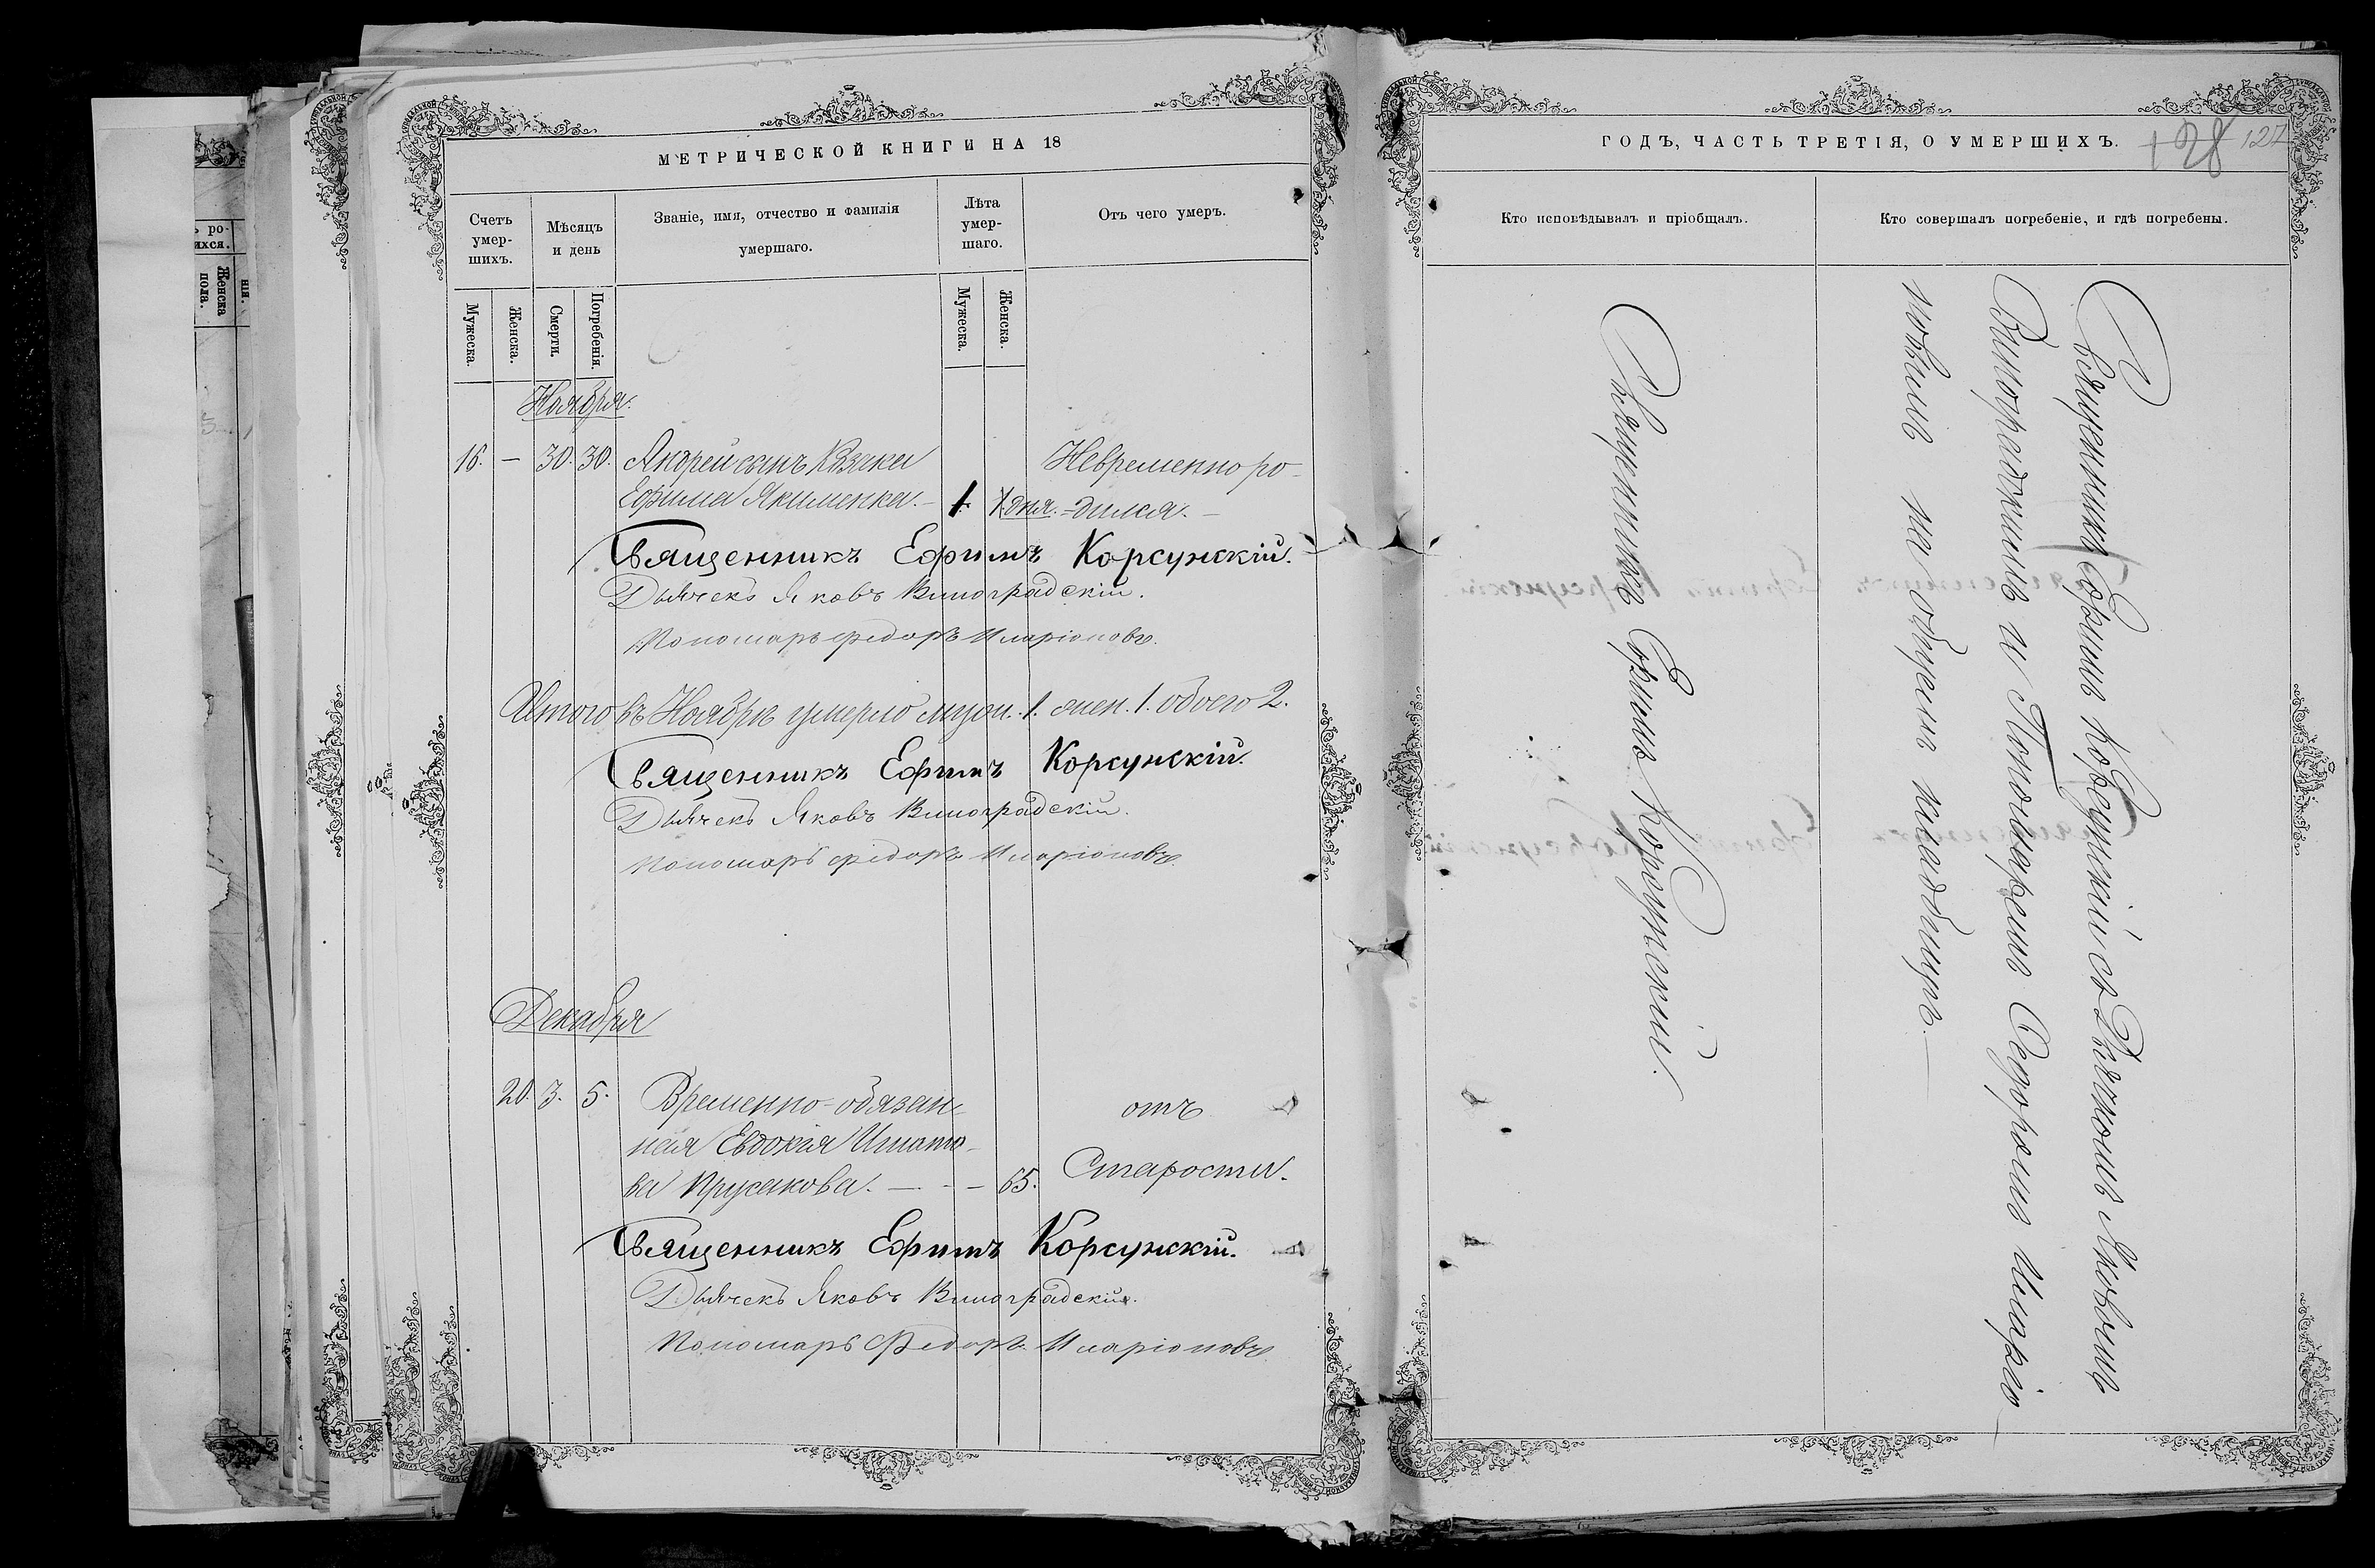 МЕТРИЧЕСКОЙ КНИГИ НА 18
Счетъ умер-шихъ.
Мѣсяцъ и день
Званіе, имя, отчество и фамилія
умершаго.
Лѣта умер-шаго.
Отъ чего умеръ.
Мужеска
Женска.
Смерти.
Погребенія.
Мужеска.
Женска.
Ноября.
16. — 30. 30. Андрей сынъ Козака Невременно ро-
Ефима Якименка. — 1. 1. дня. -дился. —
Священникъ Ефимъ Корсунскій.
Дьячекъ Яковъ Виноградскій.
Пономарь Федоръ Иларіоновъ.
Итого въ Ноябрѣ умерло муж. 1. жен. 1. обоего 2.
Священникъ Ефимъ Корсунскій.
Дьячекъ Яковъ Виноградскій.
Пономарь Федоръ Иларіоновъ.
Декабря
20. 3. 5. Временно-обязан- отъ
ная Евдокія Игнато-
ва Прусакова. — - — 65. Старости.
Священникъ Ефимъ Корсунскій.
Дьячекъ Яковъ Виноградскій.
Пономарь Федоръ Иларіоновъ
ГОДЪ, ЧАСТЬ ТРЕТІЯ, О УМЕРШИХЪ.
128 127
Кто исповѣдывалъ и пріобщалъ.
Кто совершалъ погребеніе, и гдѣ погребены.
Священникъ Ефимъ Корсунскій.
Священникъ Ефимъ Корсунскій съ Дьячкомъ Яковомъ
Виноградскимъ и Пономаремъ Ѳедоромъ Иларіо-
новымъ на общемъ кладбищѣ. —
ъ ро-
ихся.
Женска
пола.
нія.